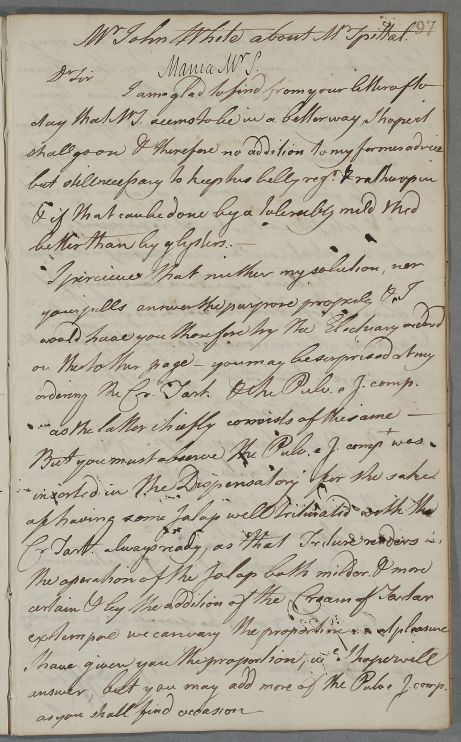 Mr John White about Mr Spittal. 97
Mania Mr S.
Dr Sir
I am glad to find from your letter of to
day that Mr S. seems to be in a better way I hope it
shall go on & therefore no addition to my former advice
but still necessary to keep his belly regr. & rather open
& if that can be done by a tolerably mild Med
better than by glysters. —
I perceive that neither my solution, nor
your pills answer the purpose properly & I
would have you therefore try the Electuary ordered
on the other page — you may be surprised at my
ordering the Cr. Tart. & the Pulv. e J. comp.
as the latter chiefly consists of the same —
But you must observe the Pulv. e J. comp was
inserted in the Dispensatory for the sake
of having some Jalap well triturated with the
Cr Tart. always ready, as that Triture renders
the operation of the Jalap both milder & more
certain & by the addition of the Cream of Tartar
extempore we can vary the proportion at pleasure
I have given you the proportion, I hope will
answer, but you may add more of the Pulv e J. comp.
as you shall find occasion